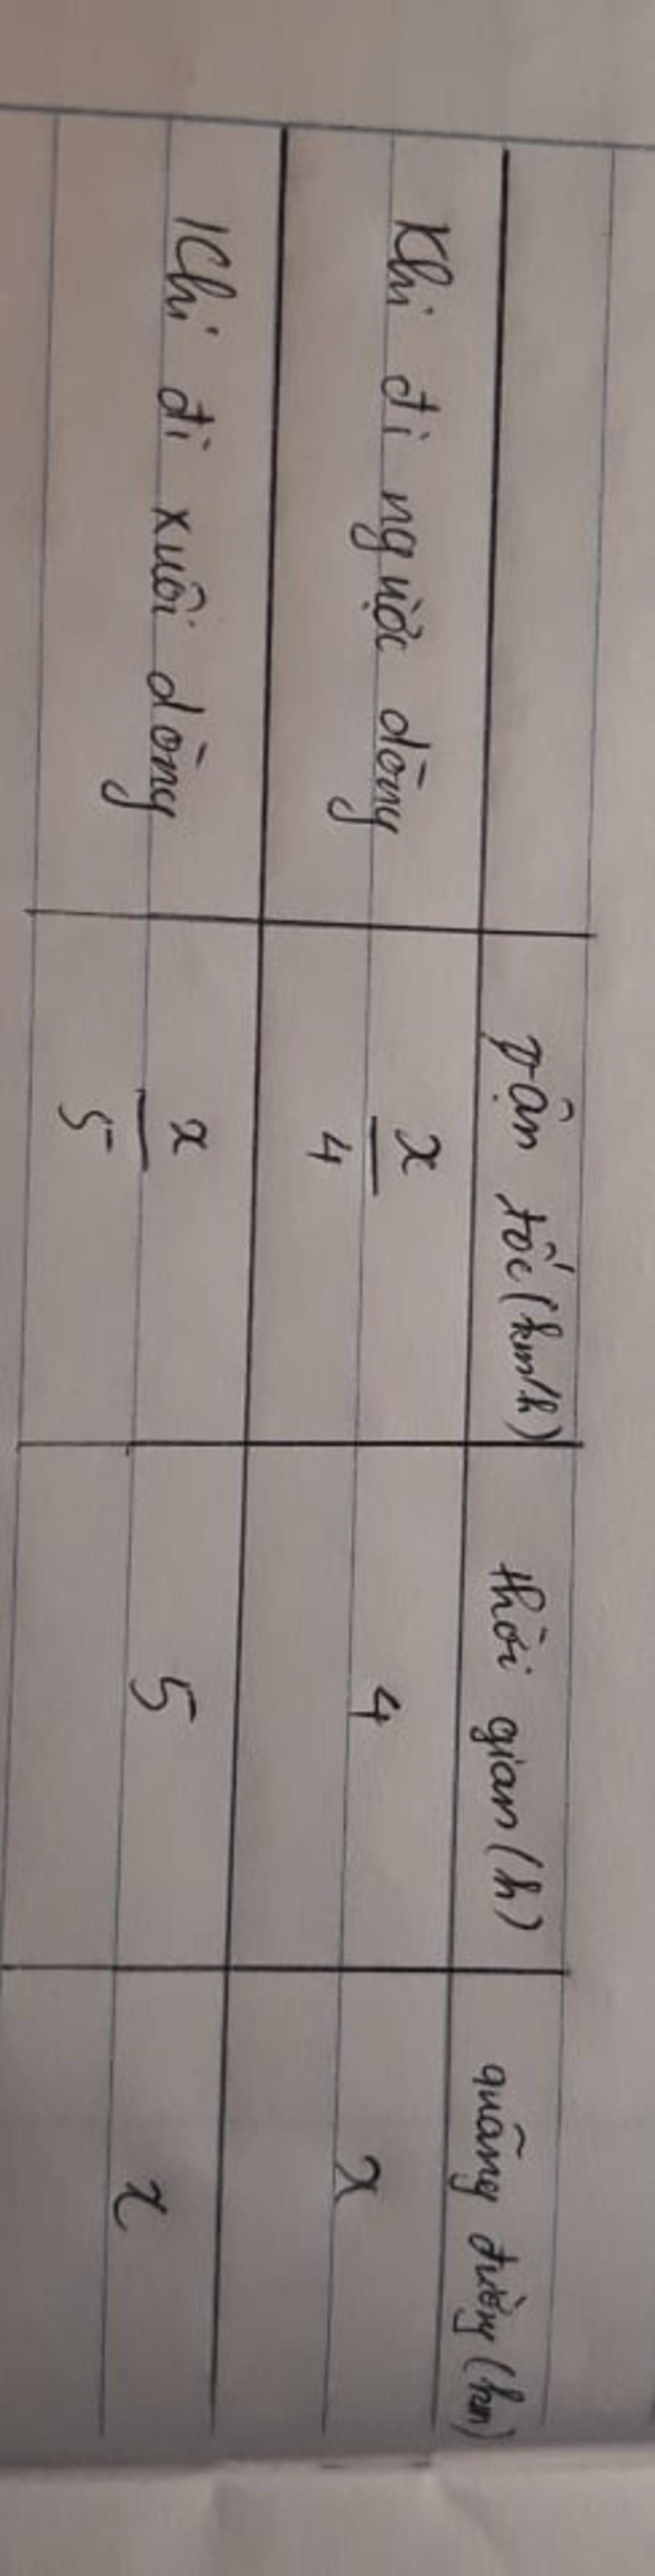 vận tốc (km/h) thời gian (h) quãng đường (km)
Khi đi ngược dòng x/4 4 x
Khi đi xuôi dòng x/5 5 x